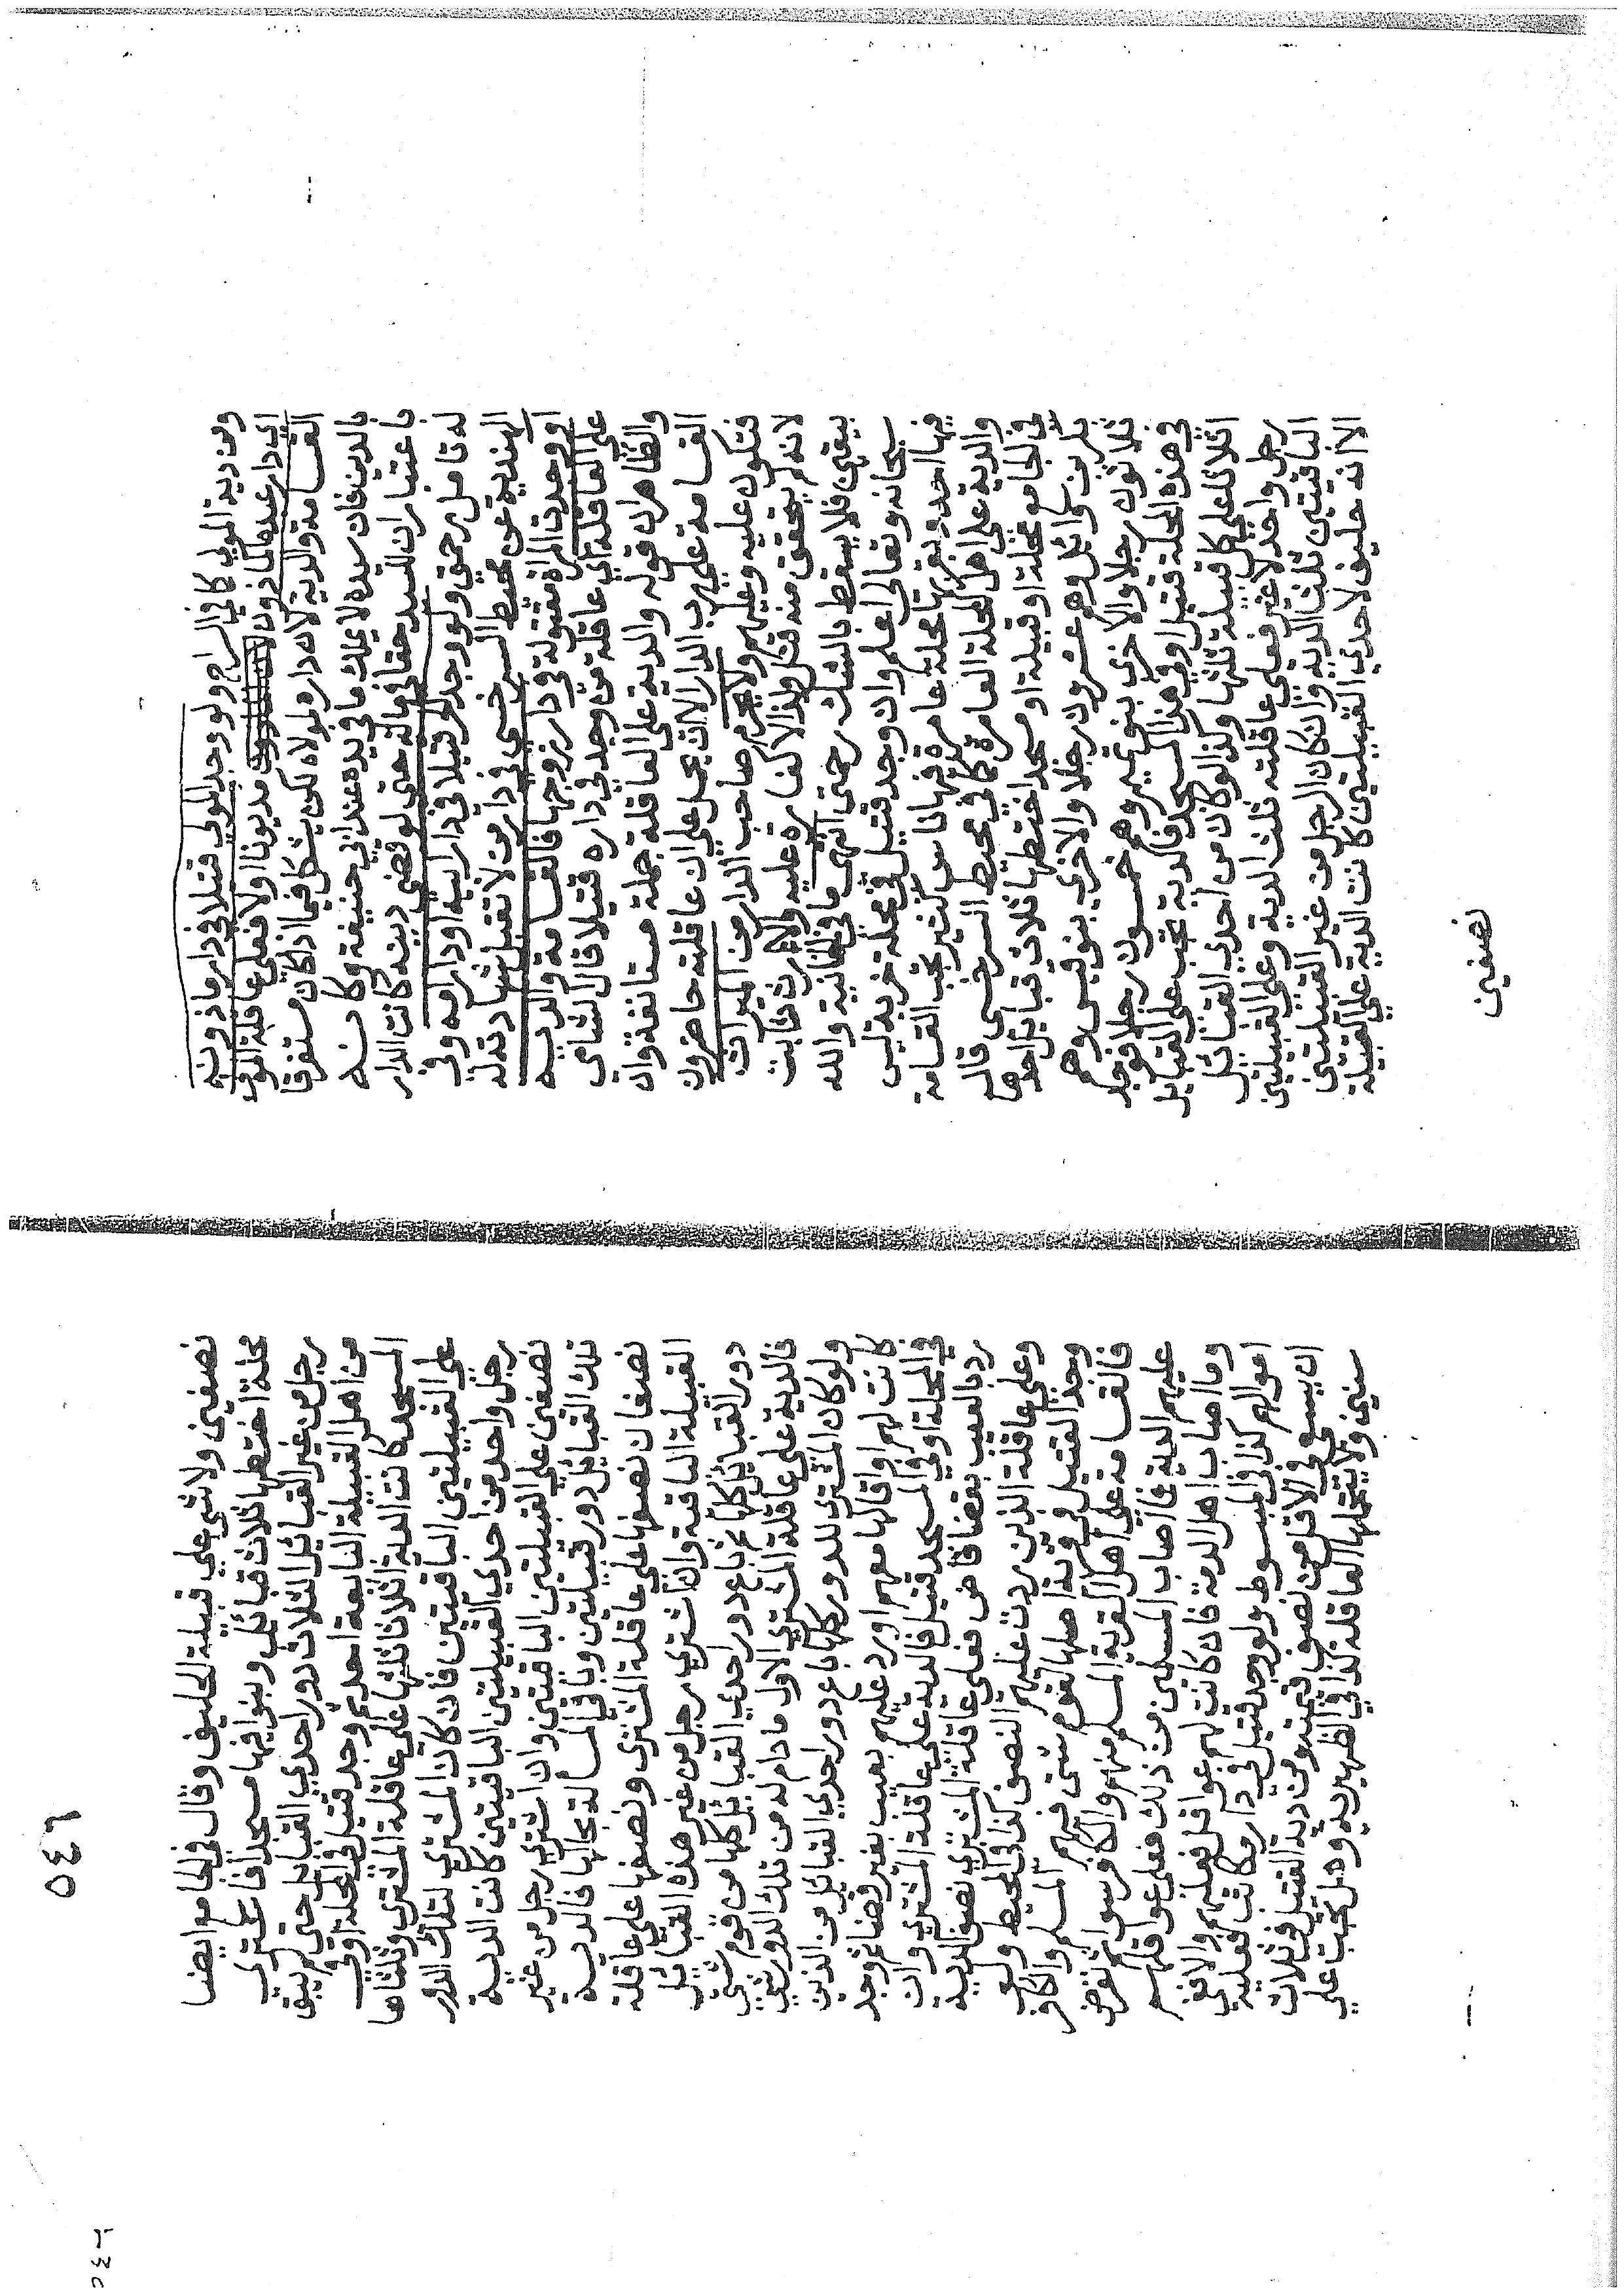 ومن دية المولي كما في السراج ولو وجد المولي قتيلا في دار ماذونه
اي دار عبده الماذون مديونا اولا فعلي عاقلة المولي
القسامة والدية لان داره لمولاه لكن يشكل فيما اذا كان مستغرقا
بالدين فان سيده لا يملك ما في يده عند ابي حنيفة وكانه
باعتبار ان للسيد حقا في ماله حتى لو قضي دينه كانت الدار
له تامل رحمتي ولو وجد الحر قتيلا في دار ابيه او دار امه وفي
الهندية عن محيط السرخسي في دار من لا تقبل شهادته له
او وجدت المراة مقتولة في دار زوجها فالقسامة والدية
على العاقلة اي عاقلة من وجد في داره قتيلا قال الشامي
والظاهر ان قوله والدية على العاقلة جملة مستانفة وان
القسامة على رب الدار الا ان يحمل على ان عاقلته حاضرون
فتكون عليه وعليهم ولا يحرم صاحب الدار من الميراث
لانه لم يتحقق منه قتل ولذا لا كفارة عليه والارث ثابت
بيقين فلا يسقط بالشك رحمتي انتهى ما في الخانية والله
سبحانه وتعالى اعلم وان وجد قتيل في محلة خربة ليس
فيها احد وبقربها محلة عامرة فيها ناس كثير تجب القسامة
والدية على اهل المحلة العامرة كما في محيط السرخسي قال
في الجامع محلة او قبيلة او مسجد اختطها ثلاث قبايل احدها
بكر بن وائل وهم عشرون رجلا والاخرى بنو قيس وهم
ثلاثون رجلا والاخرى بنو تميم وهم خمسون رجلا فوجد
في هذه المحلة قتيل او في هذا المسجد فالدية تجب على القبايل
اثلاثا على كل قبيلة ثلثها وكذا لو كان من احدى القبائل
رجل واحد لا غير فعلى عاقلته ثلث الدية وعلى القبيلتين
الباقيتين ثلثا الدية وان كان الرجل من غير القبيلتين
الا انه حليف لاحدى القبيلتين كانت الدية على القبيلة
نصفين
٥٤٦
نصفين ولا شي على قبيلة الحليف وقال في الجامع ايضا
محلة اختطها ثلاث قبائل وبنوا فيها مسجدا فاشترى
رجل من غير القبائل الثلاث دور احدى القبايل حتى لم يبق
من اهل القبيلة البائعة احد ثم وجد قتيل في المحلة او في
المسجد كانت الدية اثلاثا ثلثها على عاقلة المشتري وثلثاها
على القبيلتين الباقيتين فان كان المشتري لتلك الدور
رجل واحد من احدى القبيلتين الباقيتين كانت الدية
نصفين على القبيلتين الباقيتين وان اشترى رجل من غير
تلك القبائل دور قبيلتين وباقي المسالة بحالها فالدية
نصفان نصفها على عاقلة المشتري ونصفها على عاقلة
القبيلة الباقية وان اشترى رجل من غير هذه القبائل
دور القبائل كلها ثم باع دور احدى القبائل كلها من قوم شتى
فالدية على عاقلة المشتري الاول ما دام له من تلك الدور شي
ولو كان المشتري للدور كلها باع دور احدى القبائل من الذين
كانت لهم او اقالها معهم او رد عليهم بعيب بغير قضا ثم وجد
في المحلة او في المسجد قتيل فالدية على عاقلة المشتري وان
رد بالعيب بقضا قاض فعلى عاقلة المشتري نصف الدية
وعلى عاقلة الذين ردت عليهم النصف كذا في المحيط ولو
وجد القتيل في قرية اصلها لقوم شتى فيهم المسلم والكافر
فالقسامة على اهل القرية المسلم منهم والكافر سوا ثم تفرض
عليهم الدية فما اصاب المسلمين من ذلك فعلى عواقلهم
وما اصاب اهل الذمة فان كانت لهم عواقل فعليهم والا ففي
اموالهم كذا في المبسوط ولو وجد قتيل في دار مكاتب فعليه
ان يسعى في الاقل من قيمته ومن دية القتيل في ثلاث
سنين ولا يتحملها العاقلة كذا في الظهيرية وهل تجب على
٥٤٦